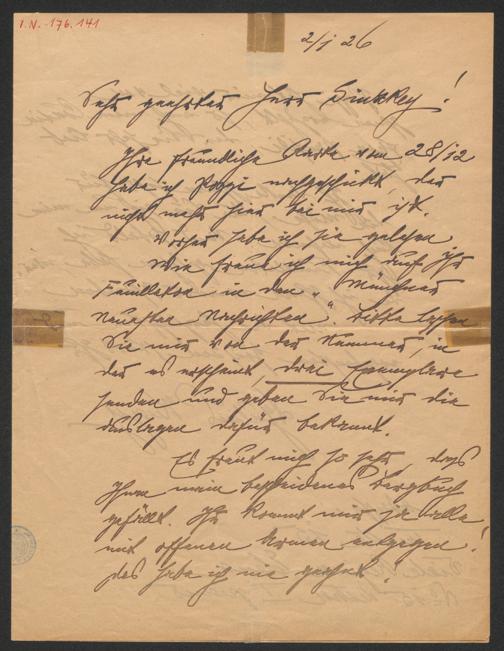 I.N.-176.141
2/I 26
Sehr geehrter Herr Ginzkey!
Ihre freundliche Karte vom 28/12
habe ich Poggi nachgeschickt, der
nicht mehr hier bei mir ist.
Vorher habe ich sie gelesen.
Wie freue ich mich auf Ihr
Feuilleton in den "Münchner
Neuesten Nachrichten". Bitte lassen
Sie mir von der Nummer, in
der es erscheint, drei Exemplare
senden und geben Sie mir die
Auslagen dafür bekannt.
Es freut mich so sehr, dass
Ihnen mein bescheidenes Bergbuch
gefällt. Ihr kommt mir ja alle
mit offenen Armen entgegen!
Das habe ich nie geahnt!